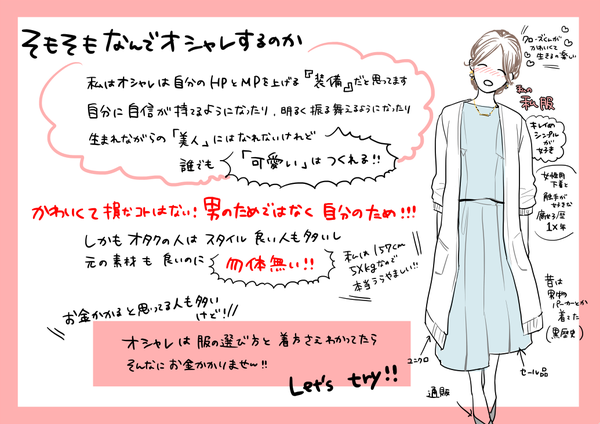 そもそもなんでオシャレするのか
私はオシャレは自分のHPとMPを上げる『装備』だと思ってます
自分に自信が持てるようになったり、明るく振る舞えるようになったり
生まれながらの「美人」にはなれないけれど
誰でも
「可愛い」はつくれる!!
かわいくて損なコトはない!男のためではなく自分のため!!!
しかもオタクの人はスタイル良い人も多いし
元の素材も良いのに
勿体無い!!
私は157cm
5XKgなので
本当うらやましい!!
お金かかると思ってる人も多い
けど!!
オシャレは服の選び方と着方さえわかってたら
そんなにお金かかりませーん!!
Let's try!!
かわいくて
生きるの楽しい
私の
私服
キレイめ
シンプル
が
好き
下着と
触手が
好きな
腐女子歴
1X年
昔は
パーカーとか
着てた
(黒歴史)
ユニクロ
セール品
通販